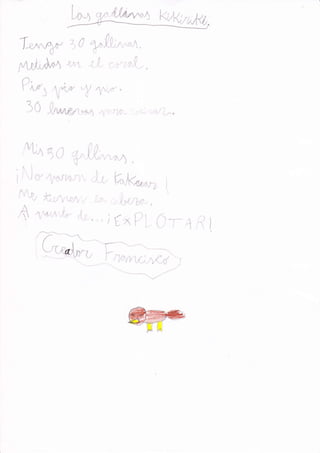 Las gallinas Kikirikí.
Tengo 30 gallinas.
metidas en el coral.
Pio, pio y pio.
30 huevos para
Mis 30 gallinas.
¡No paran de
Me tienen la
A punto de...¡EXPLOTAR!
Creador Francisco